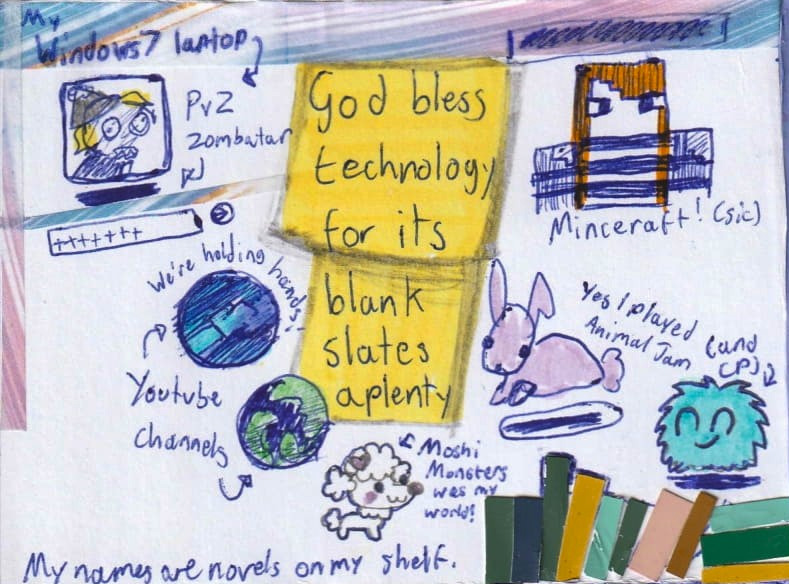 My
Windows7 laptop
PvZ
zombatar
God bless
technology
for its
blank
slates
aplenty
Minceraft! (sic)
+++++++
We're holding hands!
Youtube
Channels
Yes I played
Animal Jam
(and
CP)
Moshi
Monsters
was my
world!
My names are novels on my shelf.